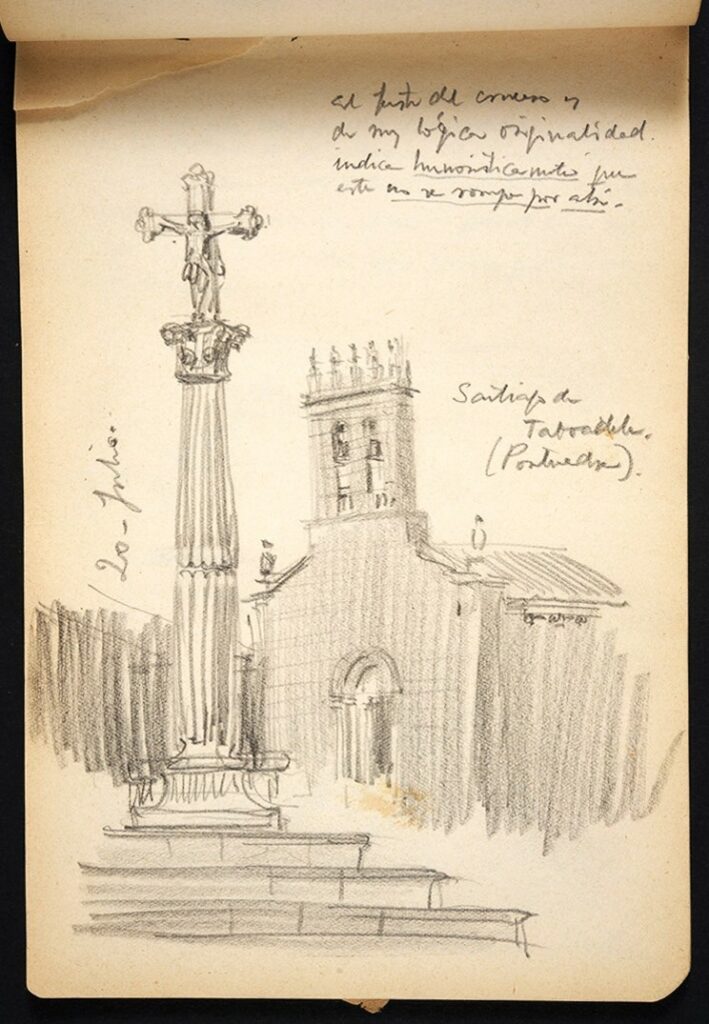 el fuste del crucero es
de muy lógica originalidad.
indica humorísticamente que
este no se rompe por ahí.
Santiago de
Taboadelo.
(Pontevedra).
20-Julio.